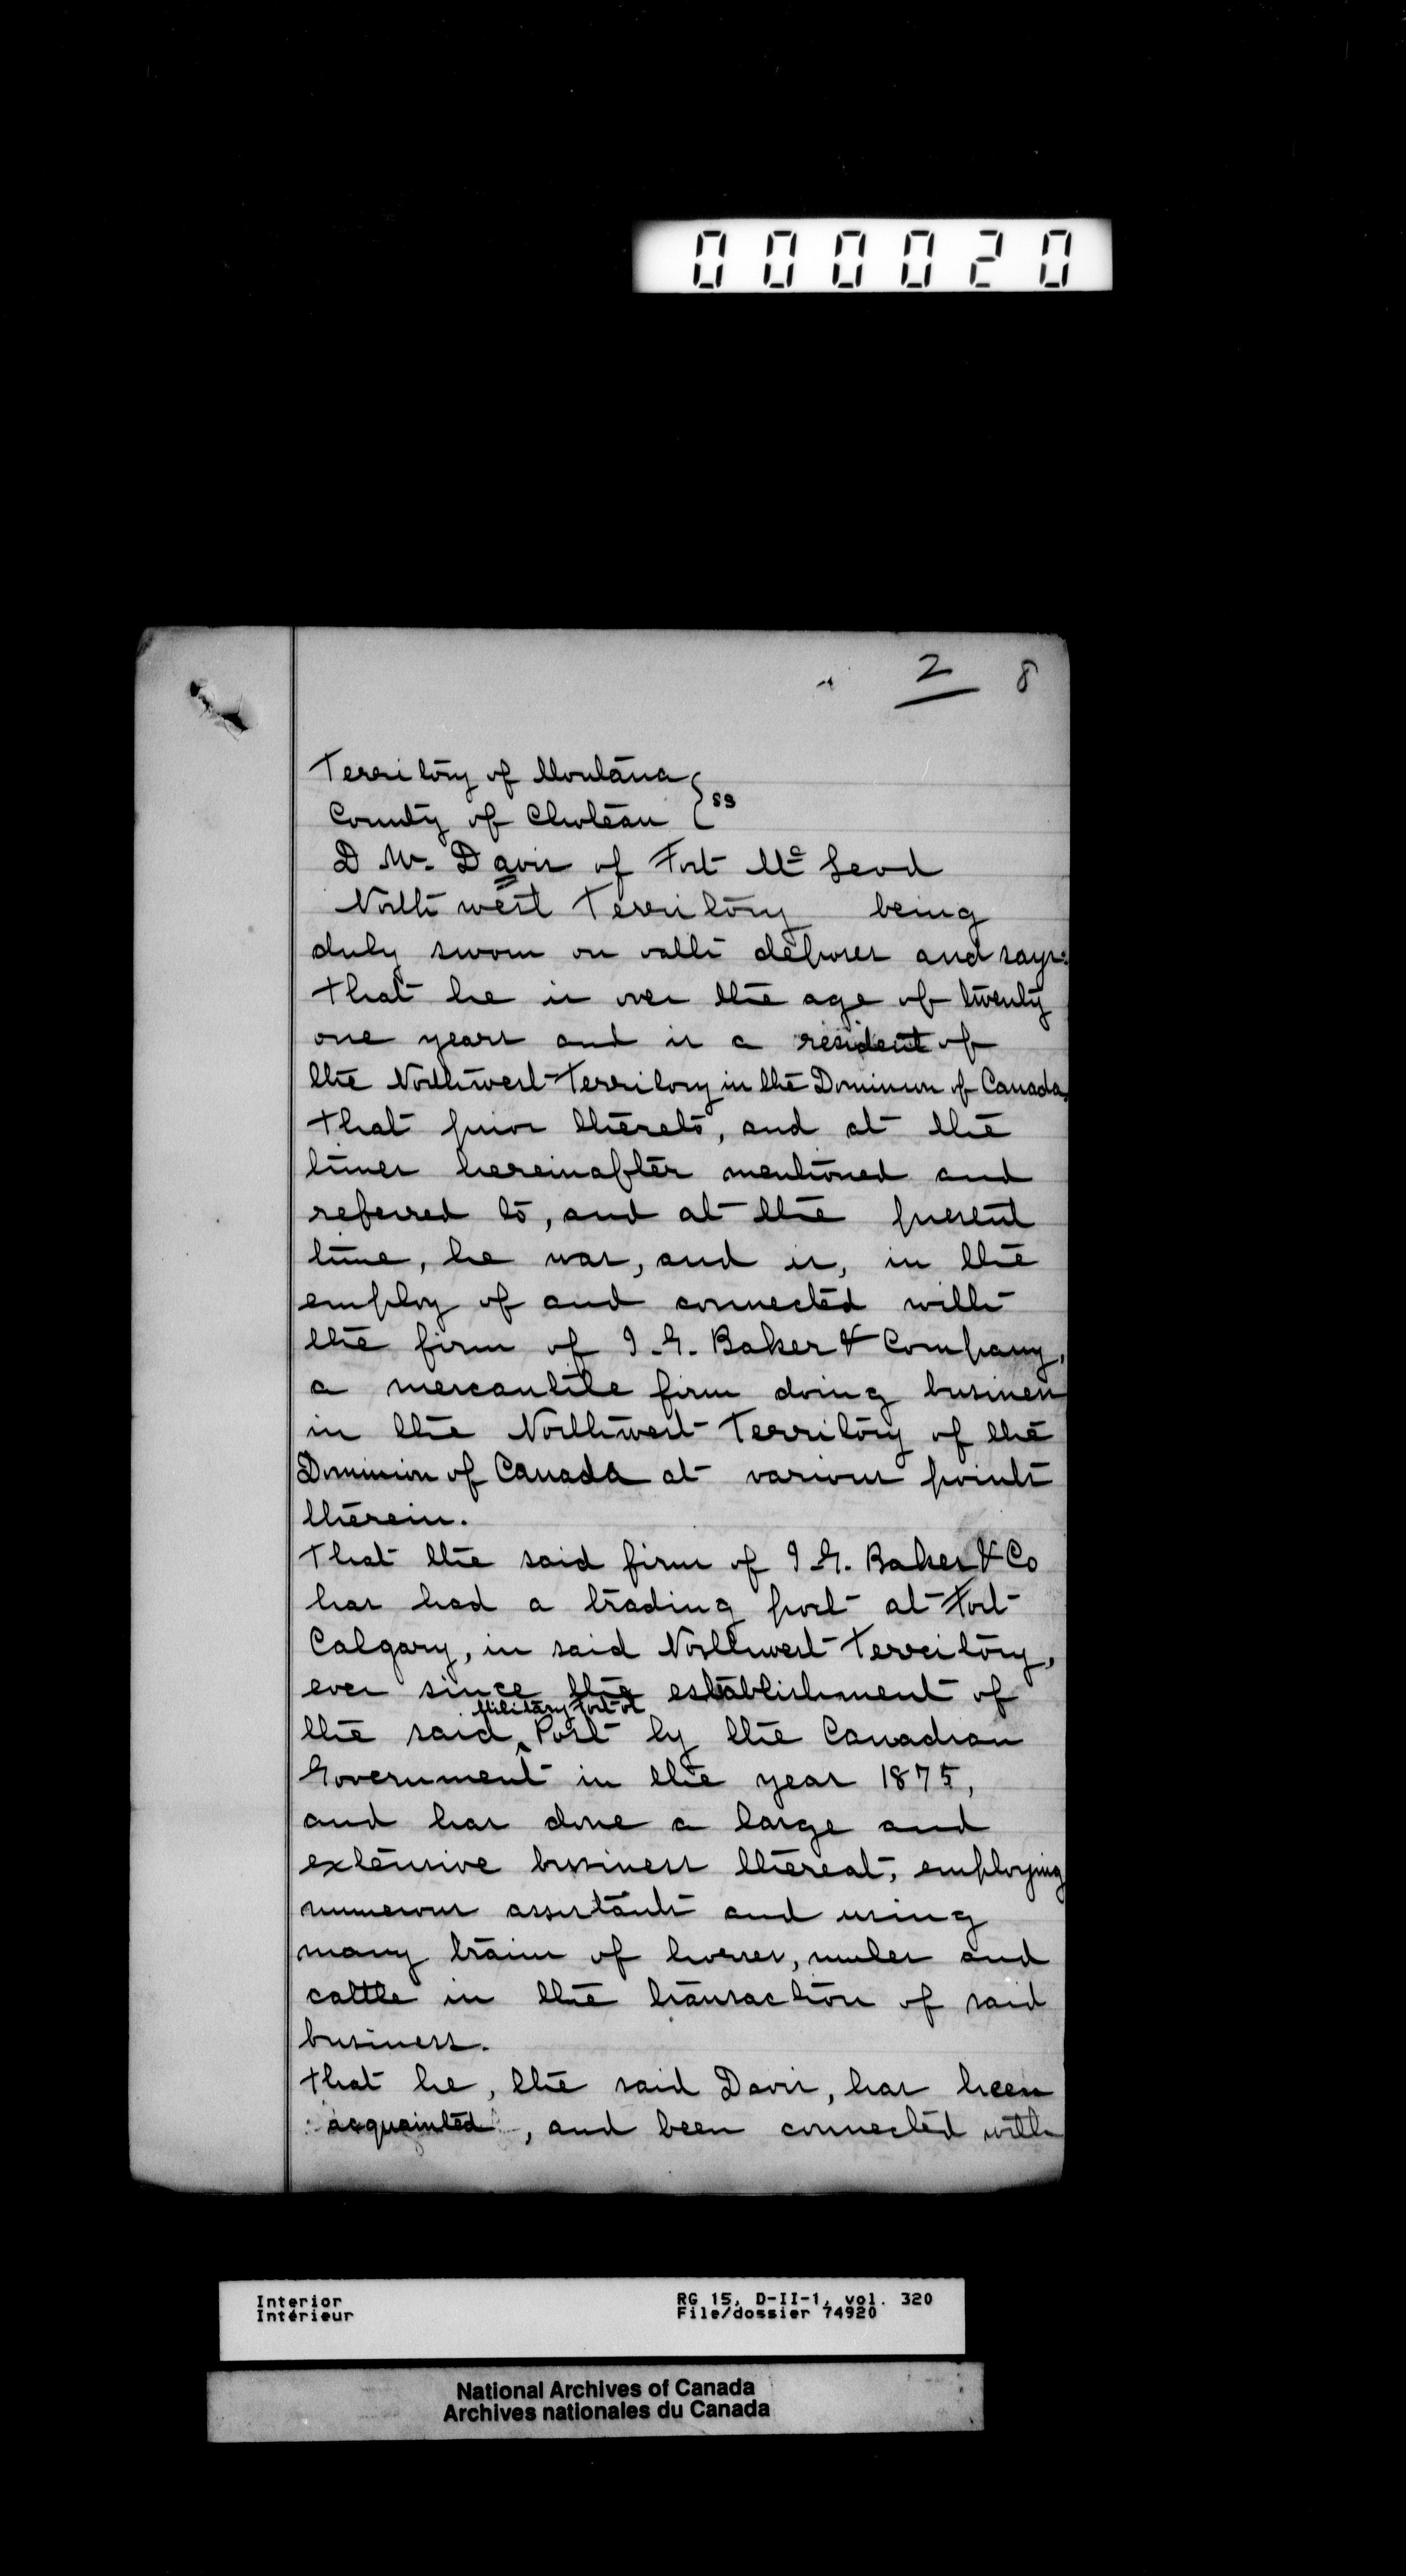 000020
2 8
Territory of Montana } ss
County of Choteau
D W. Davis of Fort Mc Leod
North west Territory being
duly sworn on oath deposes and says:
that he is over the age of twenty
one years and is a resident of
the Northwest Territory in the Dominion of Canada.
that prior thereto, and at the
times hereinafter mentioned and
referred to, and at the present
time, he was, and is, in the
employ of and connected with
the firm of I. G. Baker & Company,
a mercantile firm doing business
in the Northwest Territory of the
Dominion of Canada at various points
therein.
That the said firm of I. G. Baker & Co
has had a trading post at Fort
Calgary, in said Northwest Territory,
ever since the establishment of
Military Fort or
the said ^ Post by the Canadian
Government in the year 1875,
and has done a large and
extensive business thereat, employing
numerous assistants and using
many trains of horses, mules and
cattle in the transaction of said
business.
that he, the said Davis, has been
acquainted, and been connected with
Interior RG 15, D-II-1, vol. 320
Intérieur File/dossier 74920
National Archives of Canada
Archives nationales du Canada